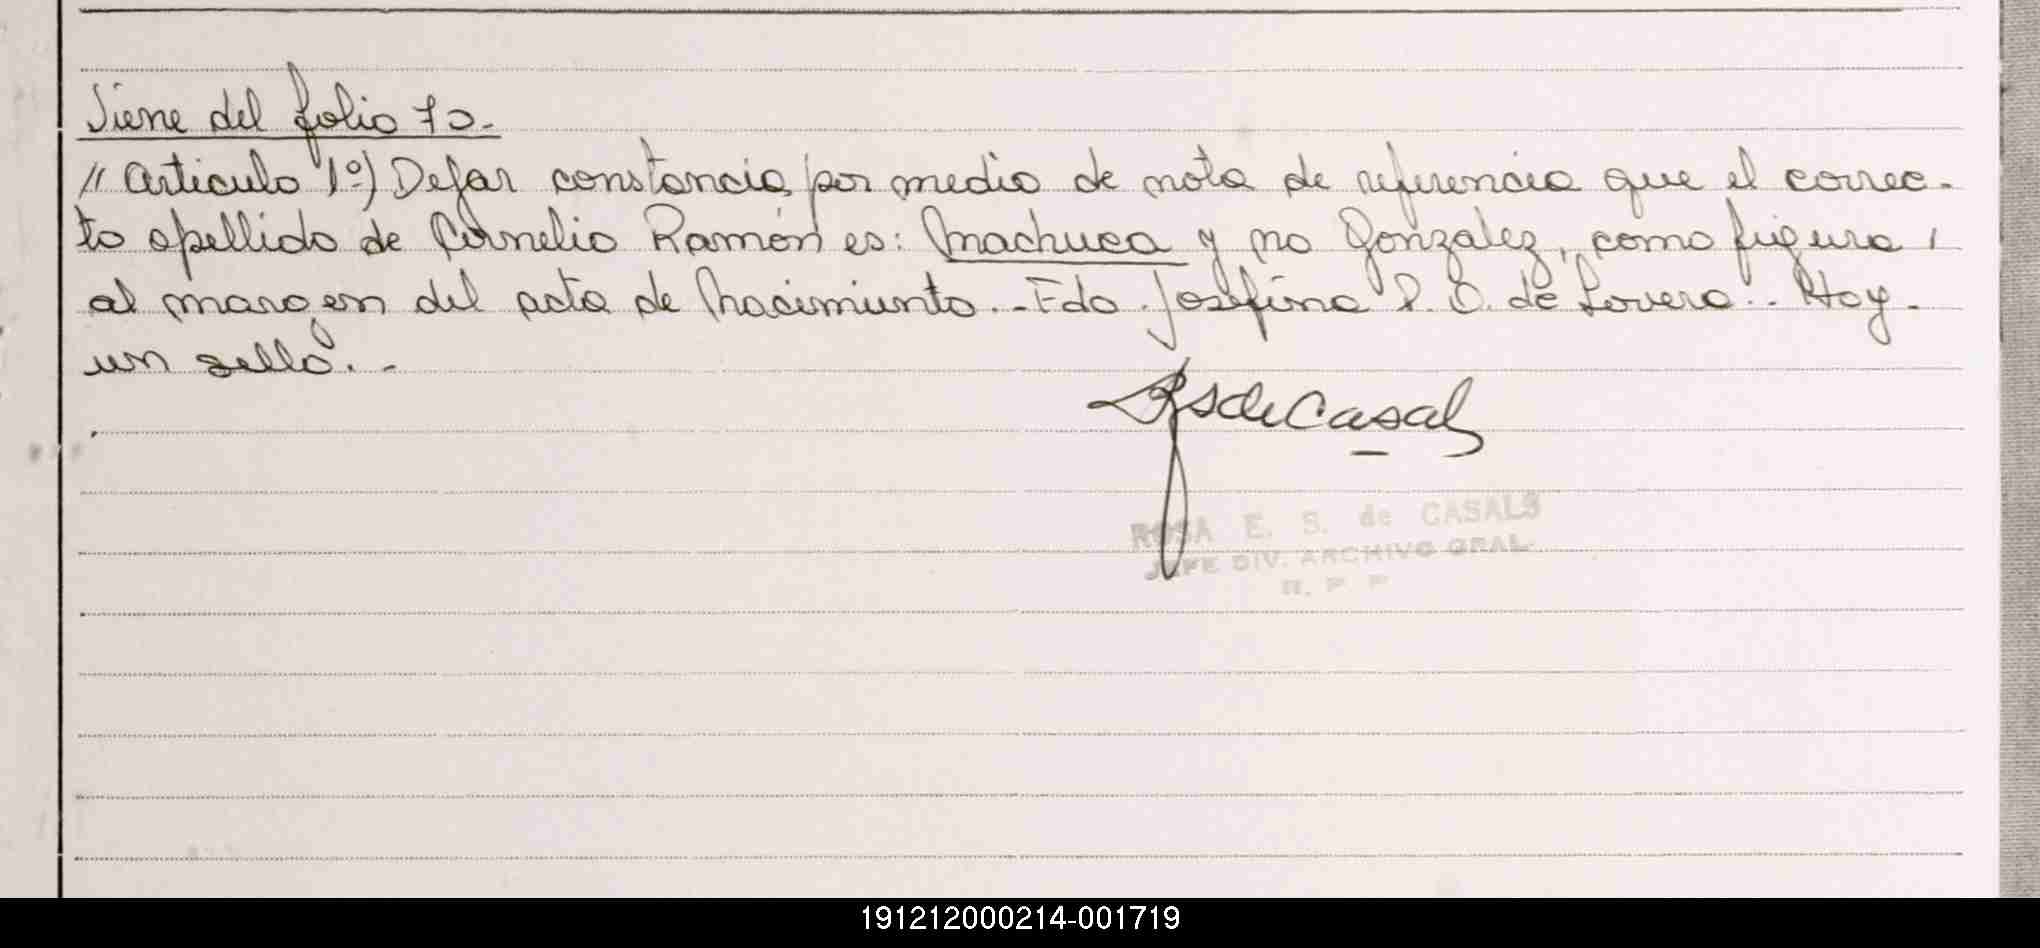 Viene del folio 70.-
// Articulo 1º) Dejar constancia, por medio de nota de referencia que el correc-
to apellido de Cornelio Ramón es: Machuca y no Gonzalez, como figura,
al margen del acta de Nacimiento.. - Fdo. Josefina P. O. de Lovera.. Hay -
un sello. . -
de Casals
ROSA E. S. de CASALS
JEFE DIV. ARCHIVO GRAL.
R. P. P
191212000214-001719